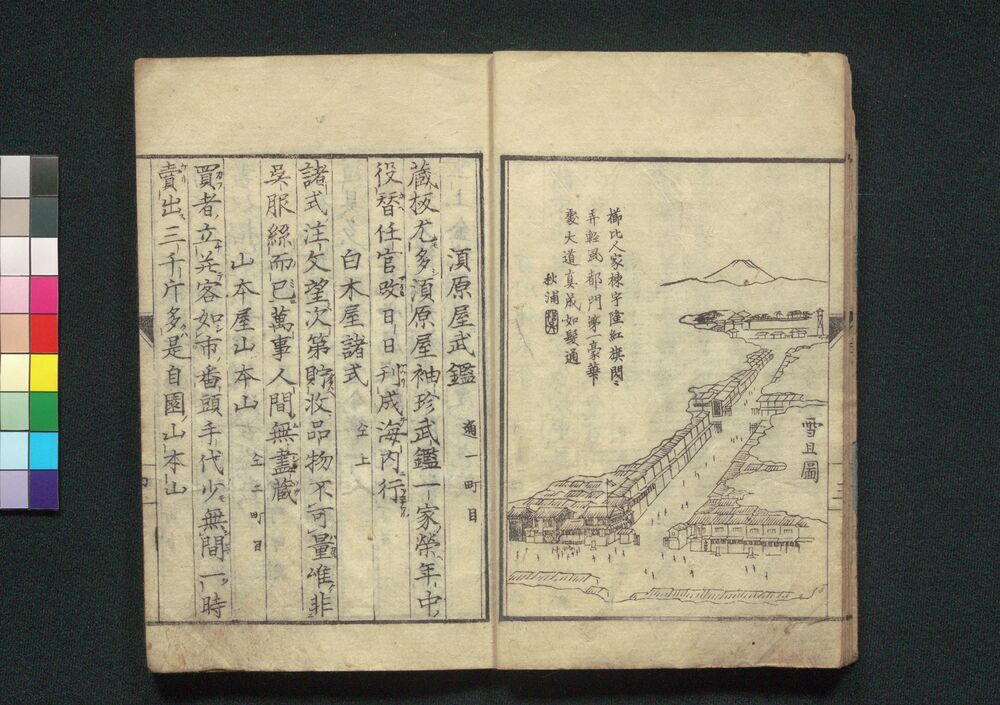 櫛比人家棟宇隆紅旗閃々
弄輕風都門第一豪華
處大道真成如髮通
秋浦
雪旦圖
湏原屋武鑑 通一町目
蔵板尤多湏原屋袖珎武鑑一家榮年中
役替任官改日日判成海内行
白木屋諸式 仝上
諸式注文望次第貯收品物不可量唯非
吳服絲而已萬事人間無盡藏
山本屋山本山 仝二町目
買者立并客如市番頭手代少無間一時
賣出三千斤多是自園山本山